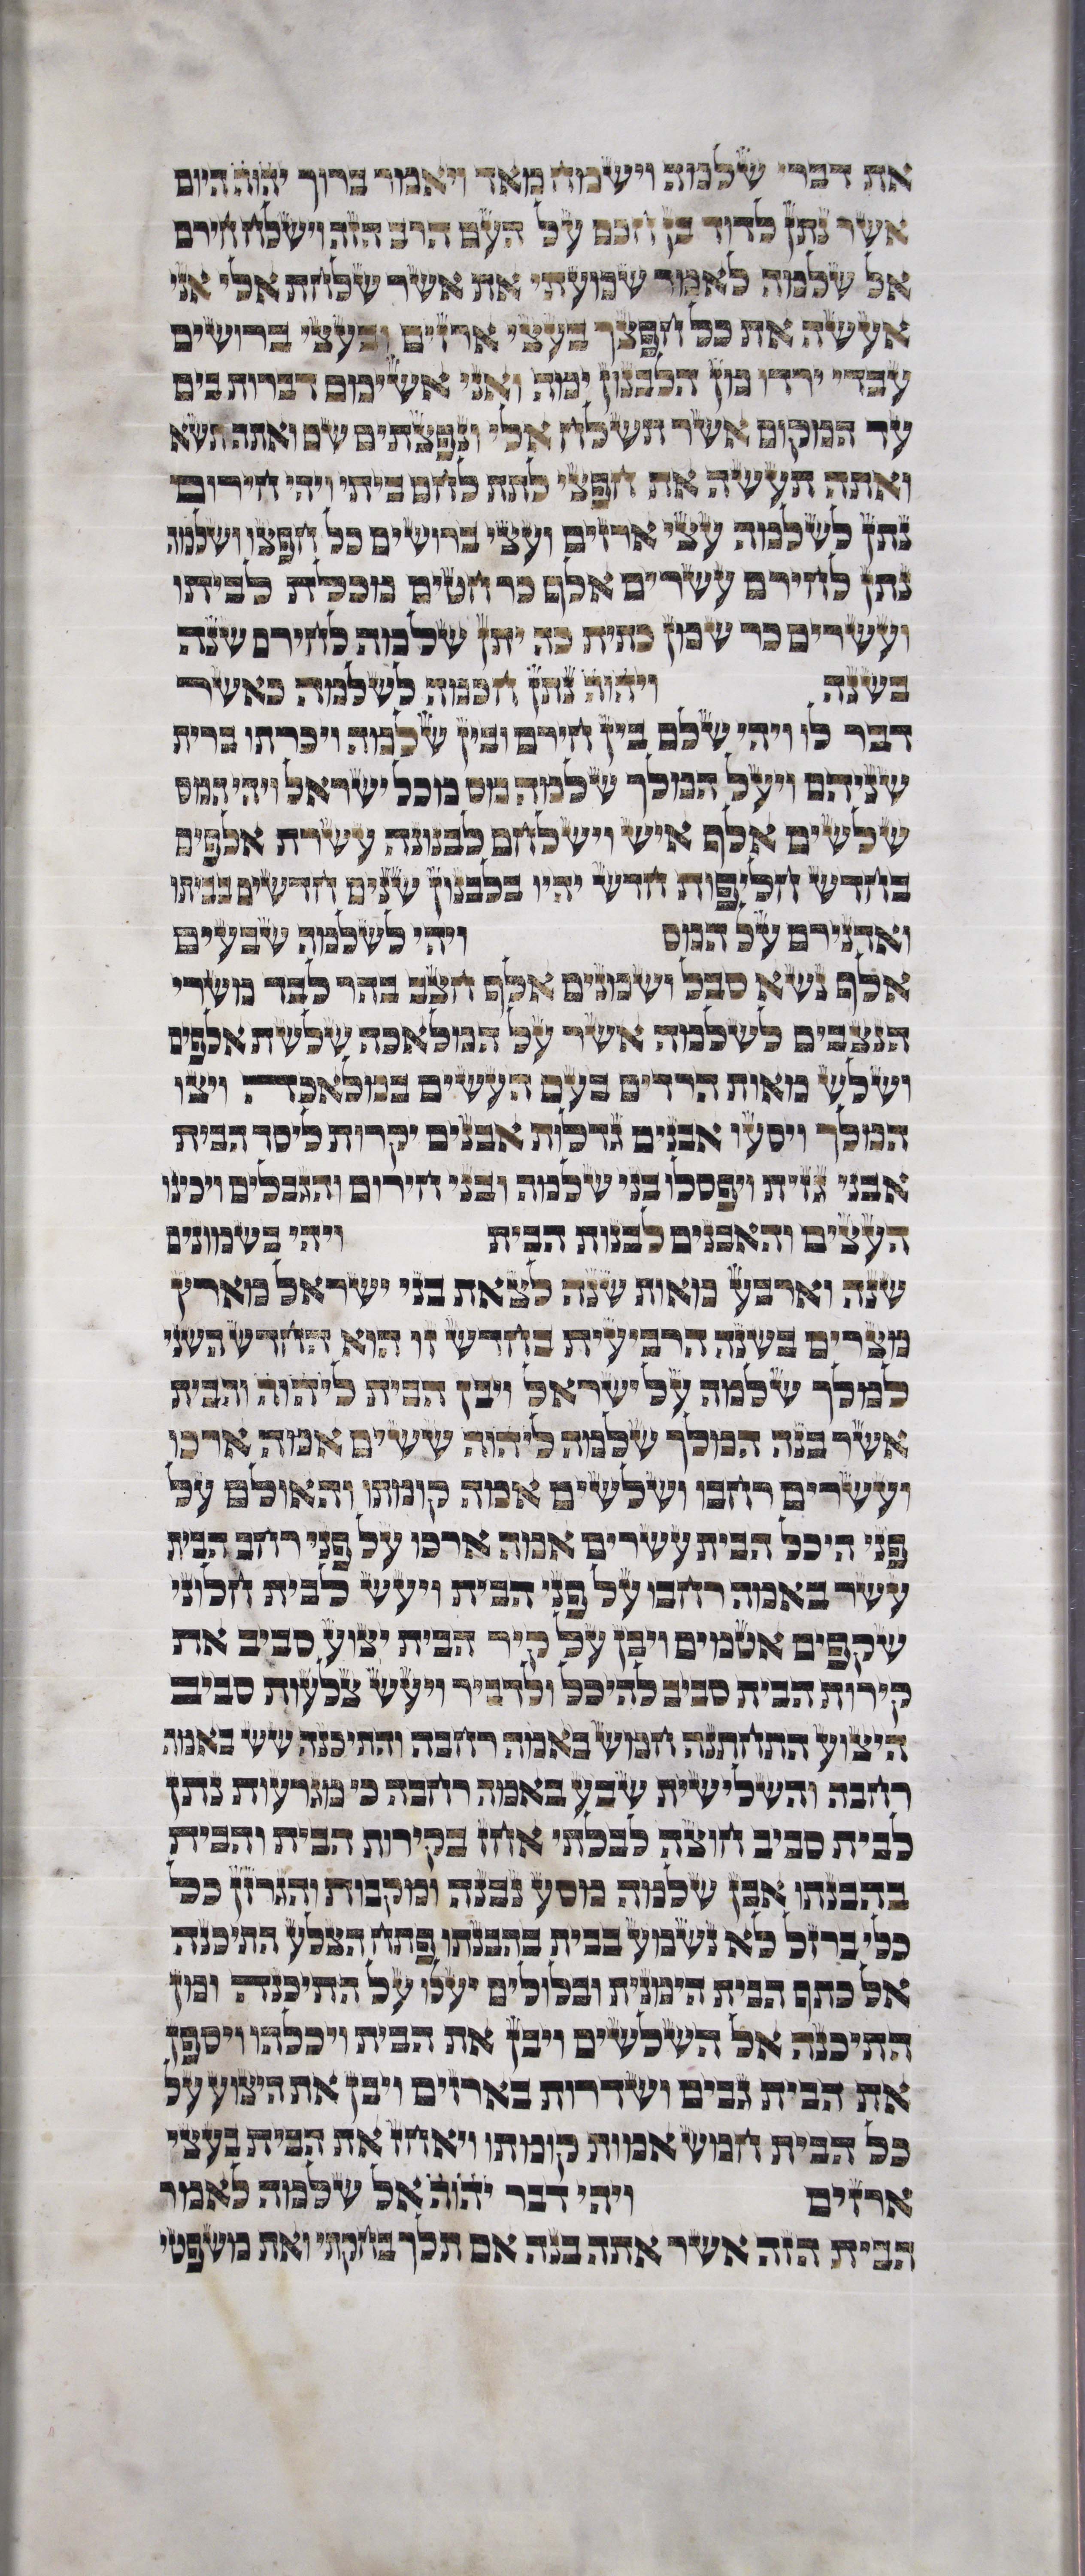 את דברי שלמה וישמח מאד ויאמר ברוך יהוה היום
אשר נתן לדוד בן חכם על העם הרב הזה וישלח חירם
אל שלמה לאמר שמעתי את אשר שלחת אלי אני
אעשה את כל חפצך בעצי ארזים ובעצי ברושים
עבדי ירדו מן הלבנון ימה ואני אשימם דברות בים
עד המקום אשר תשלח אלי ונפצתים שם ואתה תשא
ואתה תעשה את חפצי לתת לחם ביתי ויהי חירום
נתן לשלמה עצי ארזים ועצי ברושים כל חפצו ושלמה
נתן לחירם עשרים אלף כר חטים מכלת לביתו
ועשרים כר שמן כתית כה יתן שלמה לחירם שנה
בשנה ויהוה נתן חכמה לשלמה כאשר
דבר לו ויהי שלם בין חירם ובין שלמה ויכרתו ברית
שניהם ויעל המלך שלמה מס מכל ישראל ויהי המס
שלשים אלף איש וישלחם לבנונה עשרת אלפים
בחדש חליפות חדש יהיו בלבנון שנים חדשים בביתו
ואדנירם על המס ויהי לשלמה שבעים
אלף נשא סבל ושמונים אלף חצב בהר לבד משרי
הנצבים לשלמה אשר על המלאכה שלשת אלפים
ושלש מאות הרדים בעם העשים במלאכה ויצו
המלך ויסעו אבנים גדלות אבנים יקרות ליסד הבית
אבני גזית ויפסלו בני שלמה ובני חירום והגבלים ויכינו
העצים והאבנים לבנות הבית ויהי בשמונים
שנה וארבע מאות שנה לצאת בני ישראל מארץ
מצרים בשנה הרביעית בחדש זו הוא החדש השני
למלך שלמה על ישראל ויבן הבית ליהוה והבית
אשר בנה המלך שלמה ליהוה ששים אמה ארכו
ועשרים רחבו ושלשים אמה קומתו והאולם על
פני היכל הבית עשרים אמה ארכו על פני רחב הבית
עשר באמה רחבו על פני הבית ויעש לבית חלוני
שקפים אטמים ויבן על קיר הבית יצוע סביב את
קירות הבית סביב להיכל ולדביר ויעש צלעות סביב
היצוע התחתנה חמש באמה רחבה והתיכנה שש באמה
רחבה והשלישית שבע באמה רחבה כי מגרעות נתן
לבית סביב חוצה לבלתי אחז בקירות הבית והבית
בהבנתו אבן שלמה מסע נבנה ומקבות והגרזן כל
כלי ברזל לא נשמע בבית בהבנתו פתח הצלע התיכנה
אל כתף הבית הימנית ובלולים יעלו על התיכנה ומן
התיכנה אל השלשים ויבן את הבית ויכלהו ויספן
את הבית גבים ושדרות בארזים ויבן את היצוע על
כל הבית חמש אמות קומתו ויאחז את הבית בעצי
ארזים ויהי דבר יהוה אל שלמה לאמר
הבית הזה אשר אתה בנה אם תלך בחקתי ואת משפטי